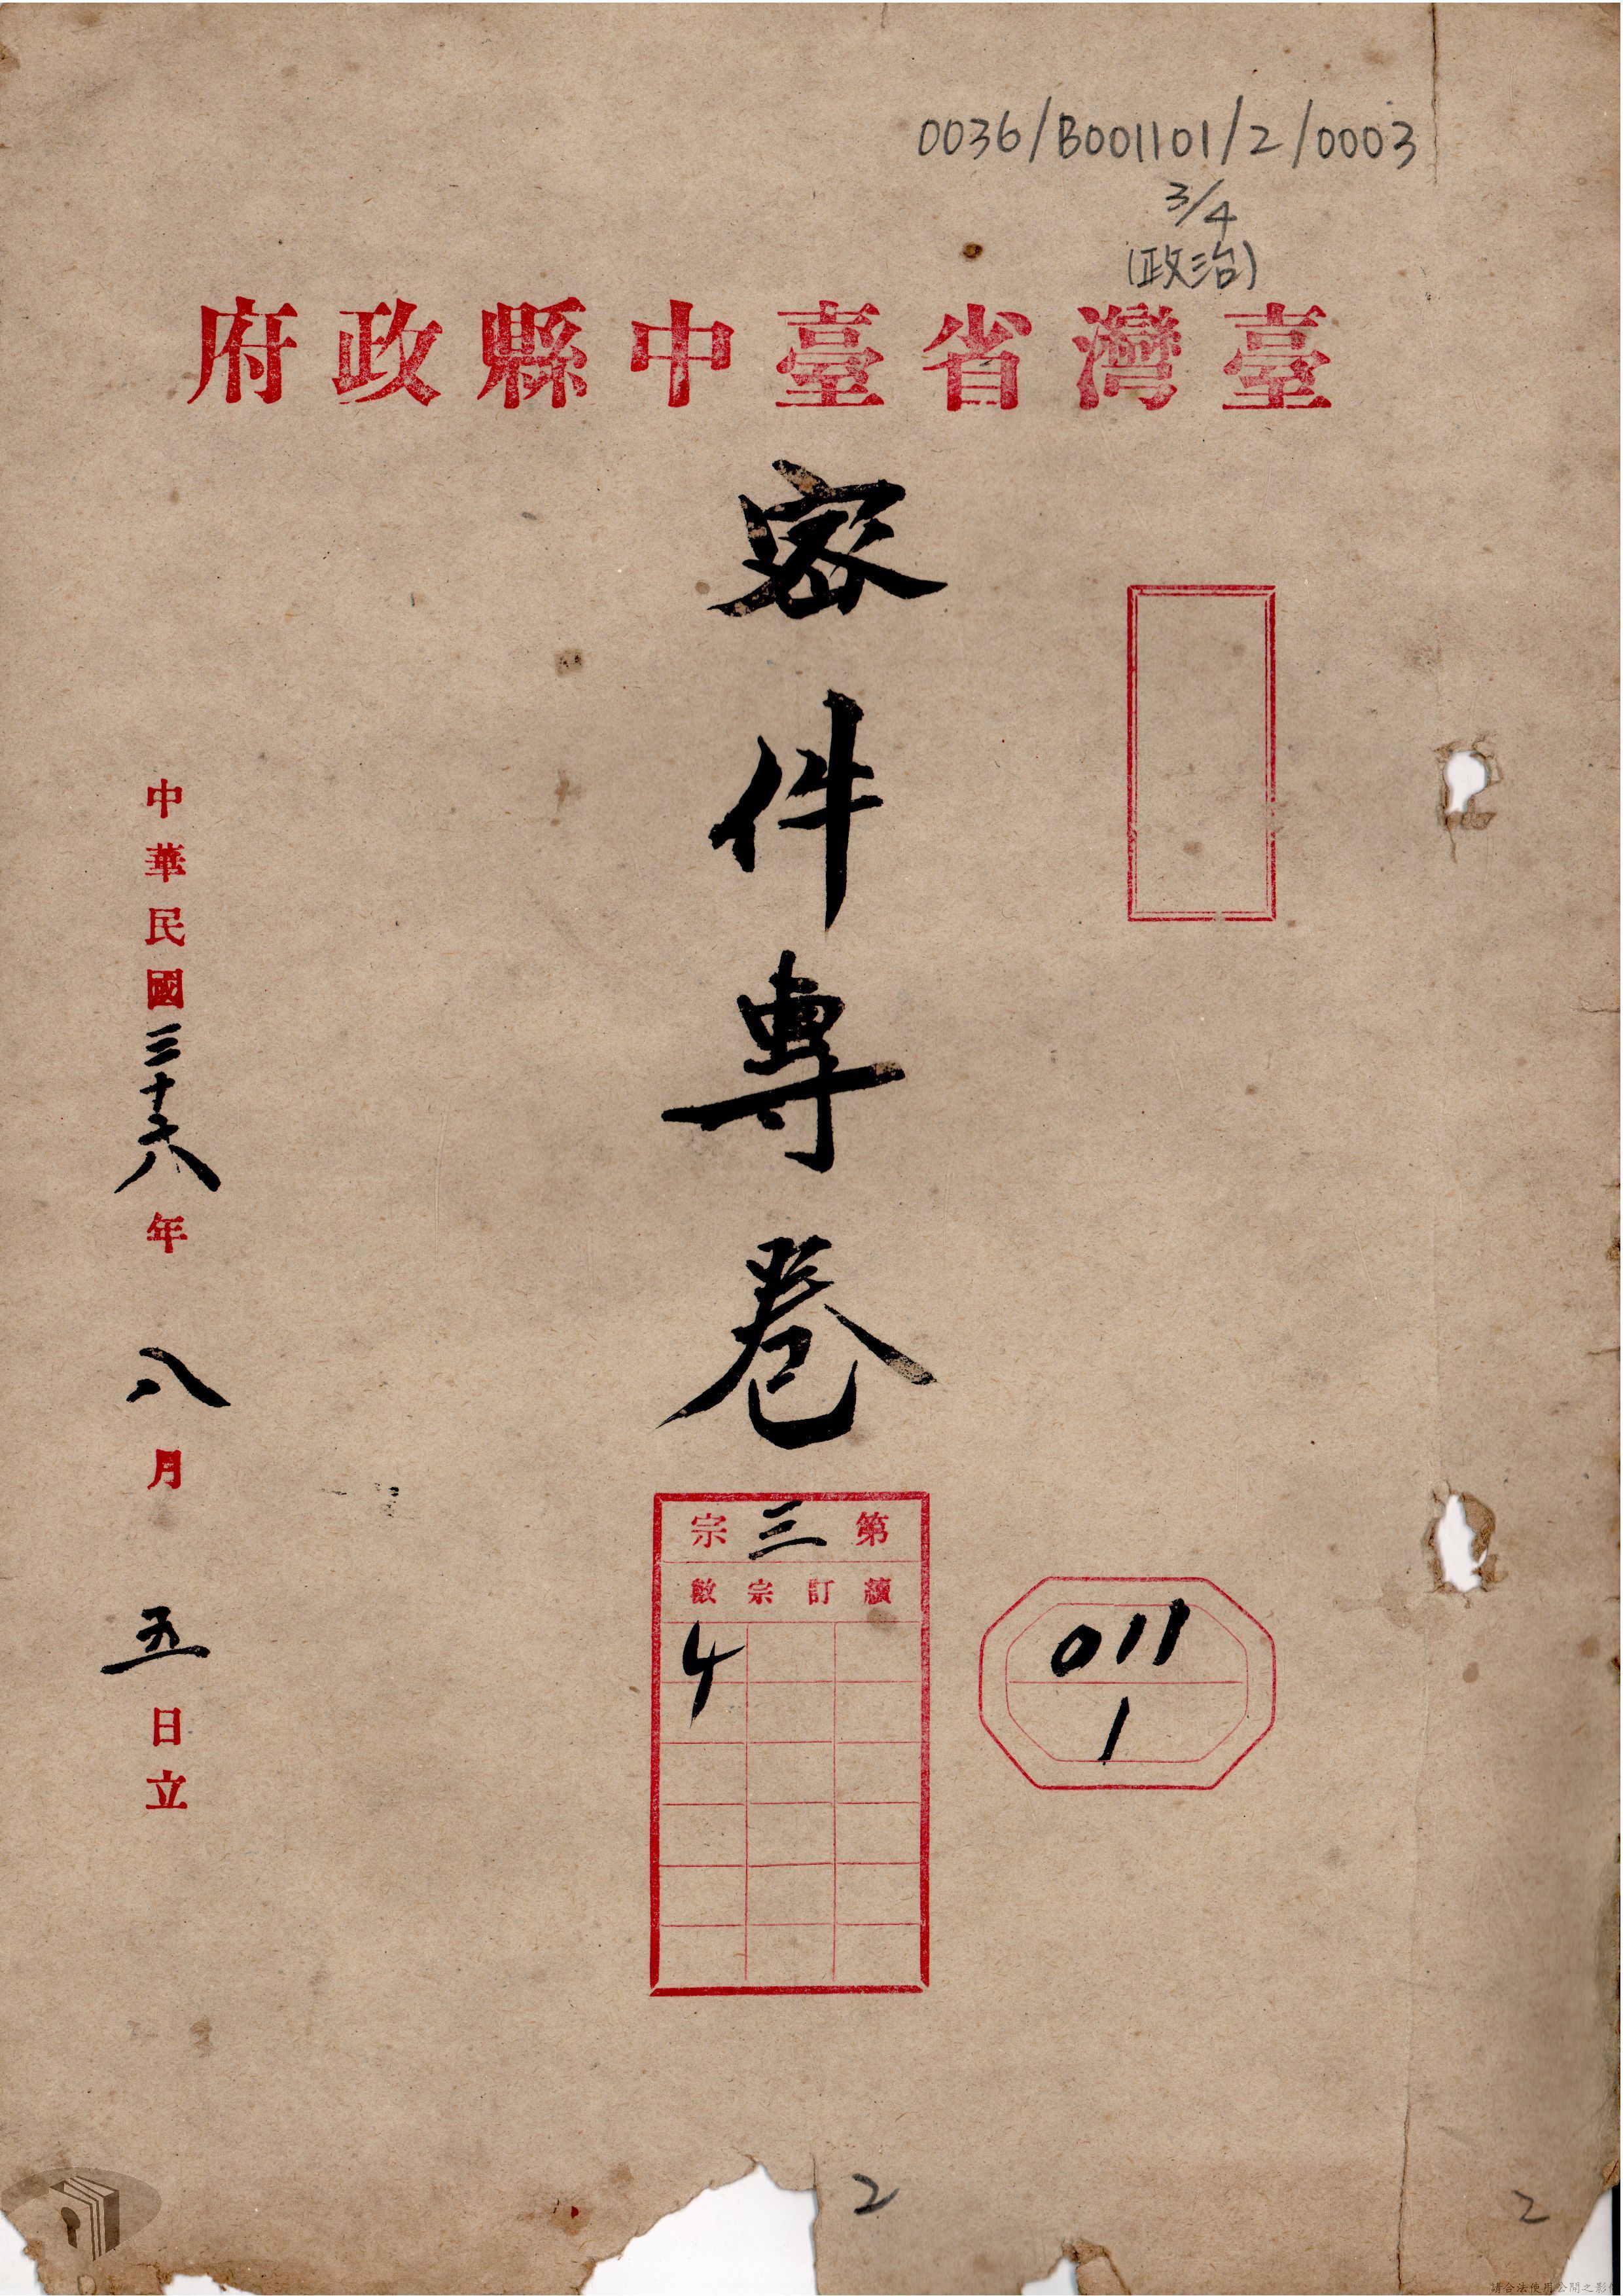 0036/B001101/2/0003
3/4
(政治)
臺灣省臺中縣政府
密件專卷
第三宗
續訂宗數
4
011
1
中華民國三十六年八月五日立
2
2
請合法使用公開之影